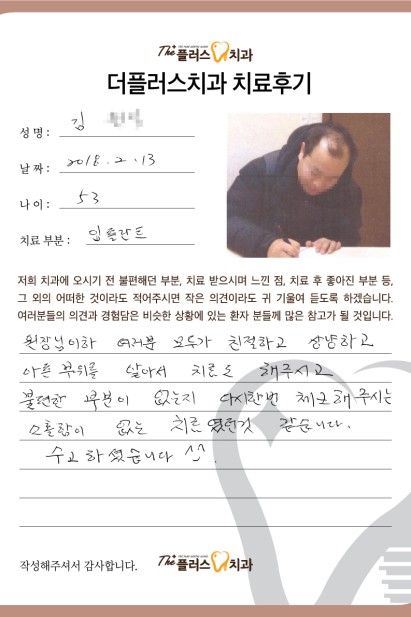 The 플러스 치과
더플러스치과 치료후기
성 명 : 김
날 짜 : 2018. 2. 13
나 이 : 53
치료 부분 : 임플란트
저희 치과에 오시기 전 불편했던 부분, 치료 받으시며 느낀 점, 치료 후 좋아진 부분 등,
그 외의 어떠한 것이라도 적어주시면 작은 의견이라도 귀 기울여 듣도록 하겠습니다.
여러분들의 의견과 경험담은 비슷한 상황에 있는 환자 분들께 많은 참고가 될 것입니다.
원장님이하 여러분 모두가 친절하고 상냥하고
아픈 부위를 알아서 치료도 해주시고
불편한 부분이 없는지 다시한번 체크해 주시는
소홀함이 없는 치료 였던것 같습니다.
수고하셨습니다 ^^.
작성해주셔서 감사합니다.
The 플러스 치과